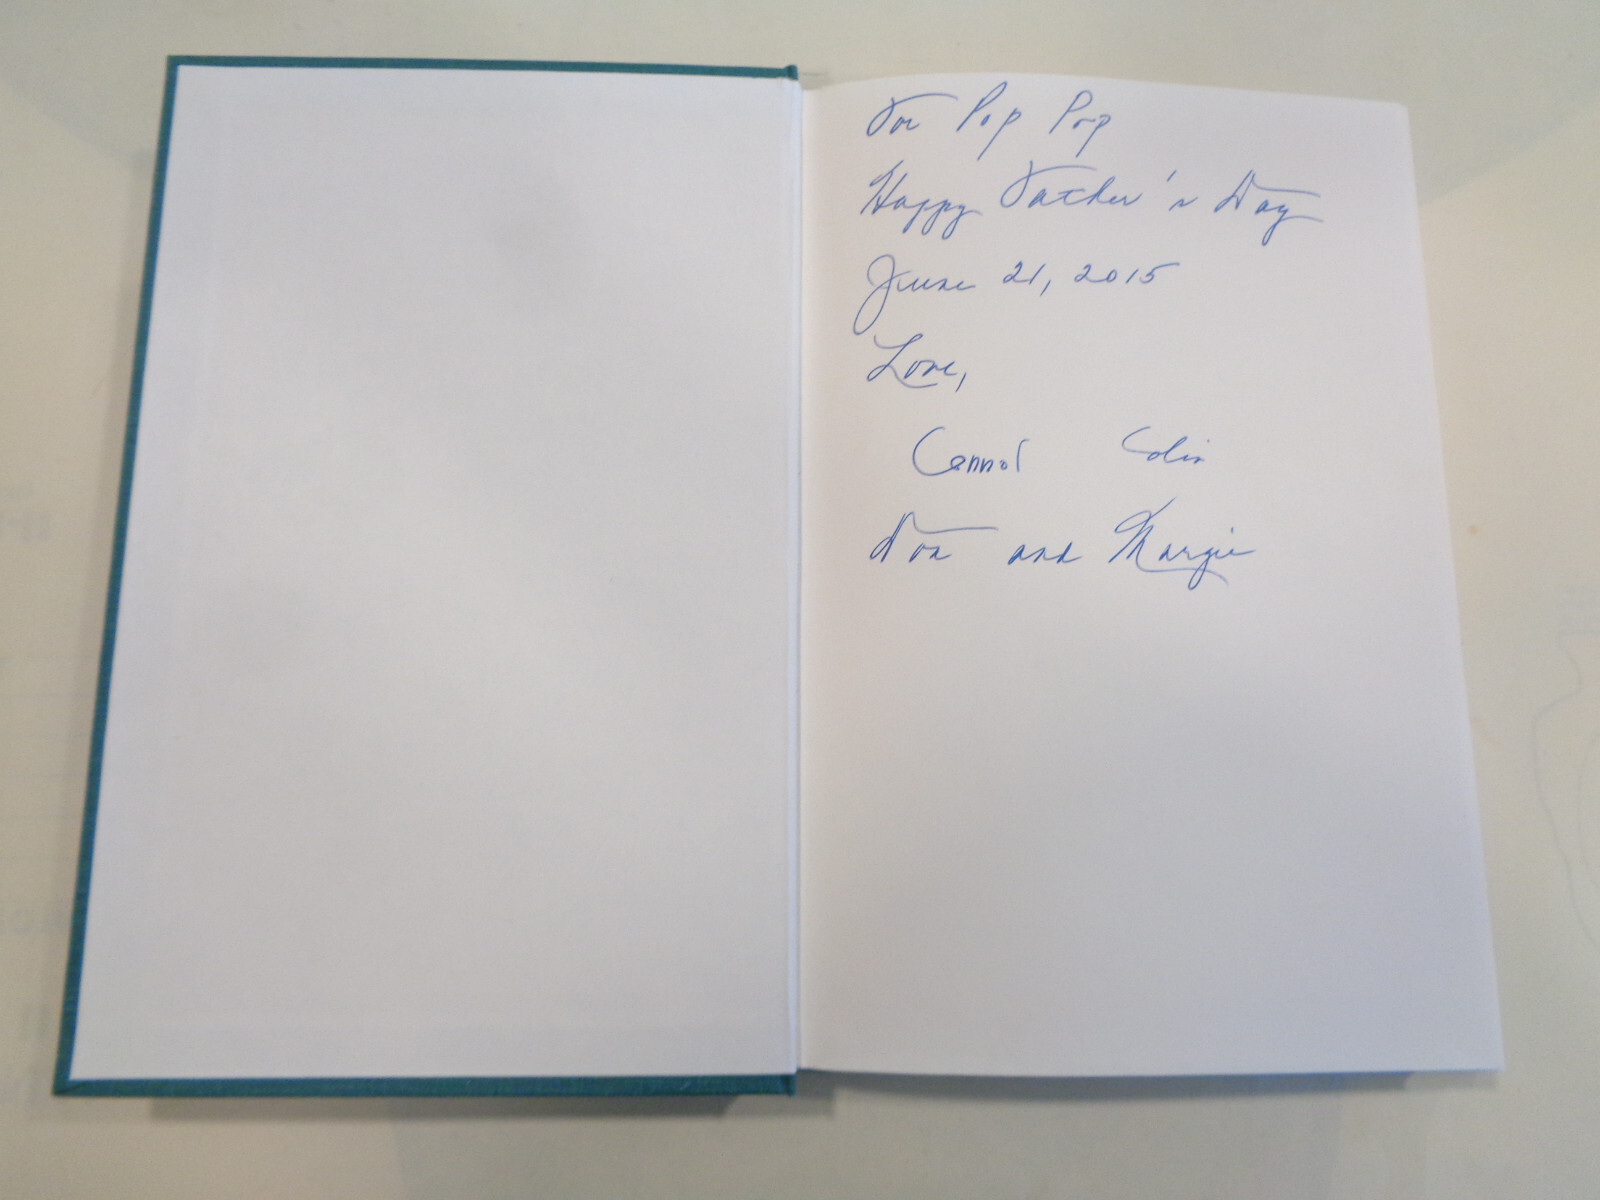 For Pop Pop
Happy Father's Day
June 21, 2015
Love,
Connor Colin
Don and Margie